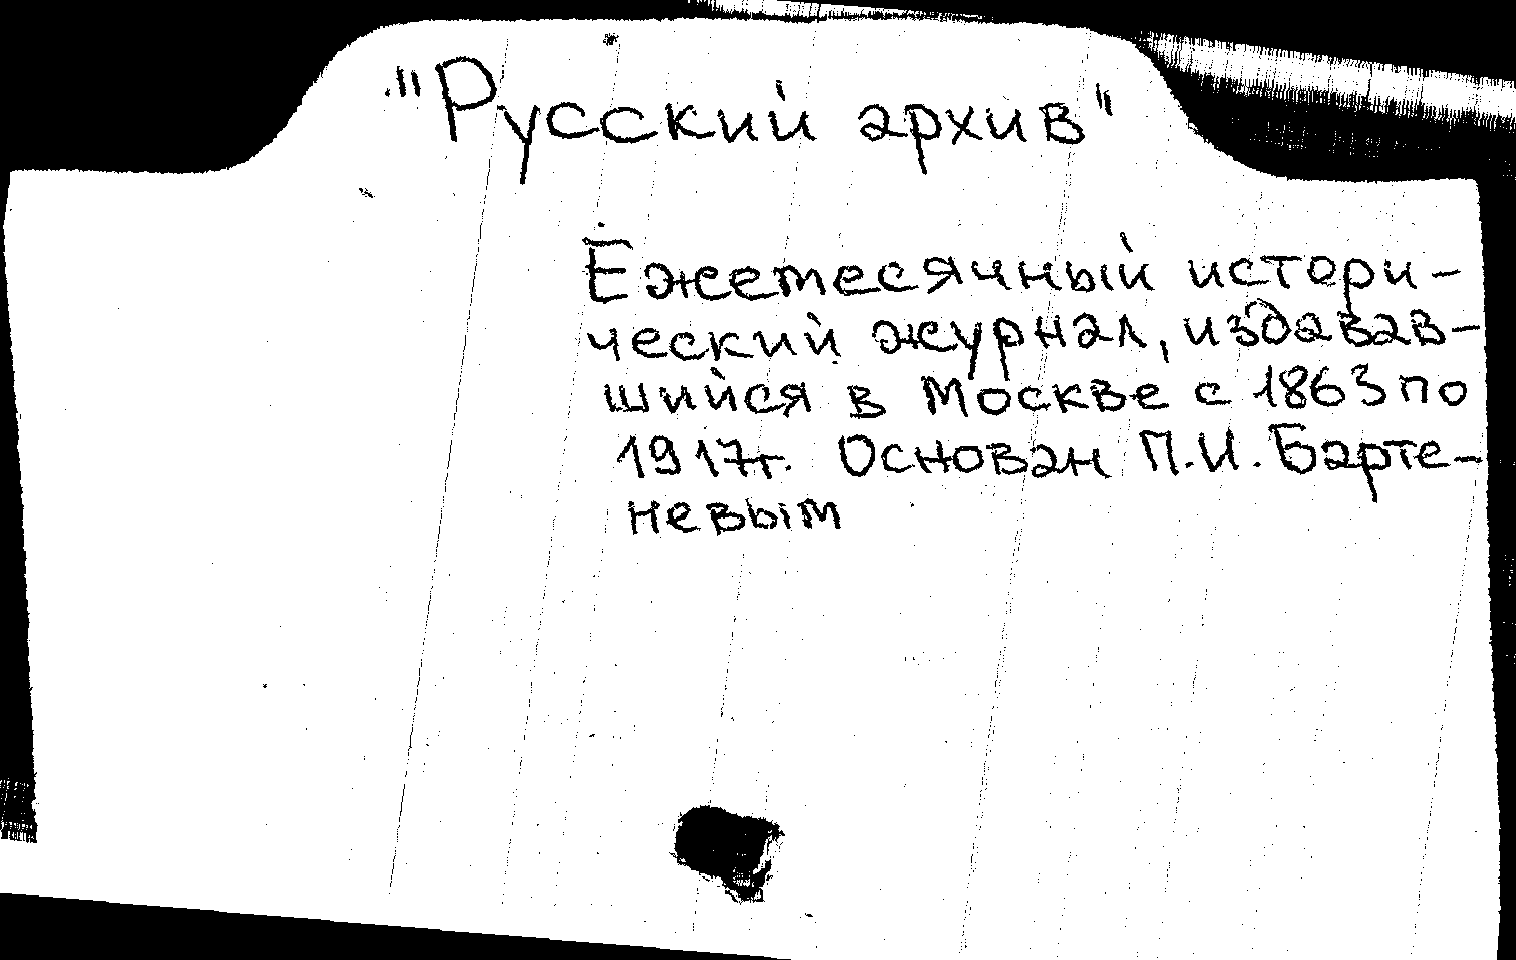 "Русский архив"
Ежемесячный истори-
ческий журнал, издавав-
шийся в Москве с 1863 по
1917г. Основан П.И. Барте-
невым